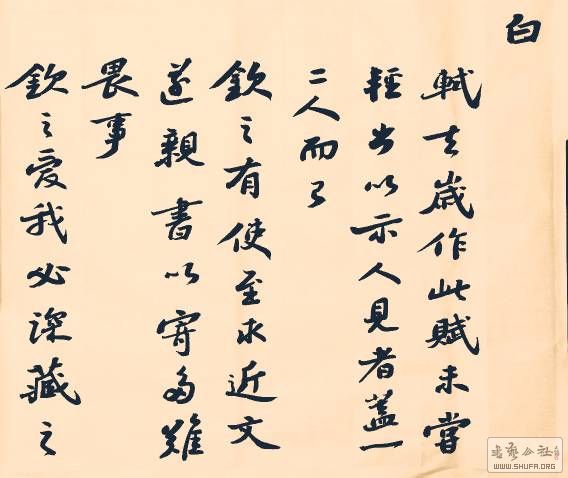 白
軾去歲作此賦未嘗
輕出以示人見者蓋一
二人而已
欽之有使至求近文
遂親書以寄多難
畏事
欽之愛我必深藏之
书艺公社
WWW.SHUFA.ORG